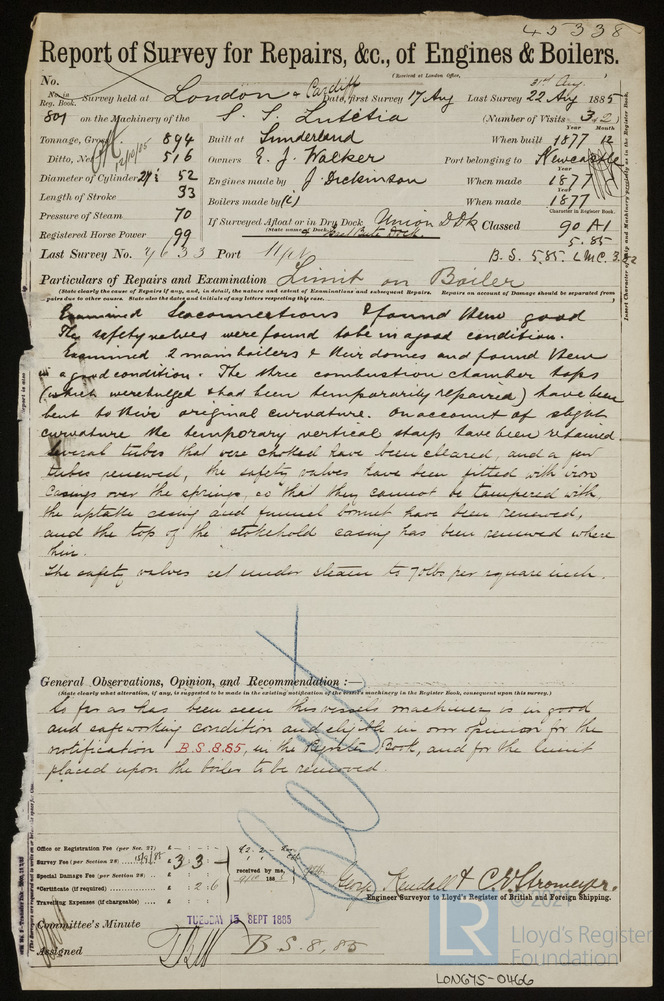 45338
Report of Survey for Repairs, &c., of Engines & Boilers.
(Received at London Office,
No.
No. in Reg. Book. Survey held at London & Cardiff Date, first Survey 17 Aug Last Survey 22 Aug 1885
801 on the Machinery of the S. S. Lutetia (Number of Visits 3 & 2)
Tonnage, Gross 894 Built at Sunderland When built 1877 12
Year Month
Ditto, Net 516 Owners E. J. Walker Port belonging to Newcastle
Diameter of Cylinder 27 & 52 Engines made by J. Dickinson When made 1877
Length of Stroke 33 Boilers made by (2) When made 1877
Pressure of Steam 70 If Surveyed Afloat or in Dry Dock Union D Dk Classed 90 A1
(State name of Dock.)
Character in Register Book.
5.85
Registered Horse Power 99
B. S. 5.85 L M C. 3.82
Last Survey No. Port
Particulars of Repairs and Examination Limit on Boiler
(State clearly the cause of Repairs if any, and, in detail, the nature and extent of Examinations and subsequent Repairs. Repairs on account of Damage should be separated from repairs due to other causes. State also the dates and initials of any letters respecting this case.
Examined Seaconnections & found them good
The safety valves were found to be in a good condition.
Examined 2 main boilers & their domes and found them
in a good condition. The three combustion chamber tops
(which were bulged & had been temporarily repaired) have been
bent to their original curvature. On account of slight
curvature the temporary vertical stays have been retained.
Several tubes that were choked have been cleared, and a few
tubes renewed, the safety valves have been fitted with iron
casings over the springs, so that they cannot be tampered with,
the uptake casing and funnel bonnet have been renewed,
and the top of the stokehold casing has been renewed where
thin.
The safety valves set under steam to 70 lbs per square inch.
General Observations, Opinion, and Recommendation :—
(State clearly what alteration, if any, is suggested to be made in the existing notification of the vessel's machinery in the Register Book, consequent upon this survey.)
So far as has been seen this vessels machinery is in good
and safe working condition and eligible in our opinion for the
notification B.S. 8.85, in the Register Book, and for the limit
placed upon the boiler to be removed.
Office or Registration Fee (per Sec. 27) £
Survey Fee (per Section 28) £ 3 : 3 : -
Special Damage Fee (per Section 28) £
*Certificate (if required) £ : 2 . 6
Travelling Expenses (if chargeable) £
received by me,
Geo. Kendall & C. E. Stromeyer.
Engineer Surveyor to Lloyd's Register of British and Foreign Shipping.
Committee's Minute
TUESDAY 15 SEPT 1885
Assigned B. S. 8, 85
© 2021
LR
Lloyd's Register
Foundation
LON675-0466